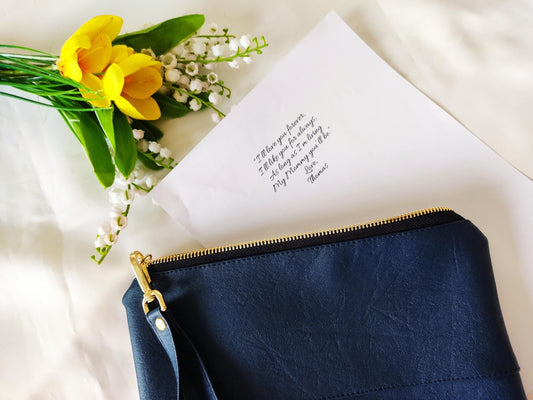 "I'll love you forever,
I'll like you for always,
As long as I'm living
My Mummy you'll be."
Love,
Thomas